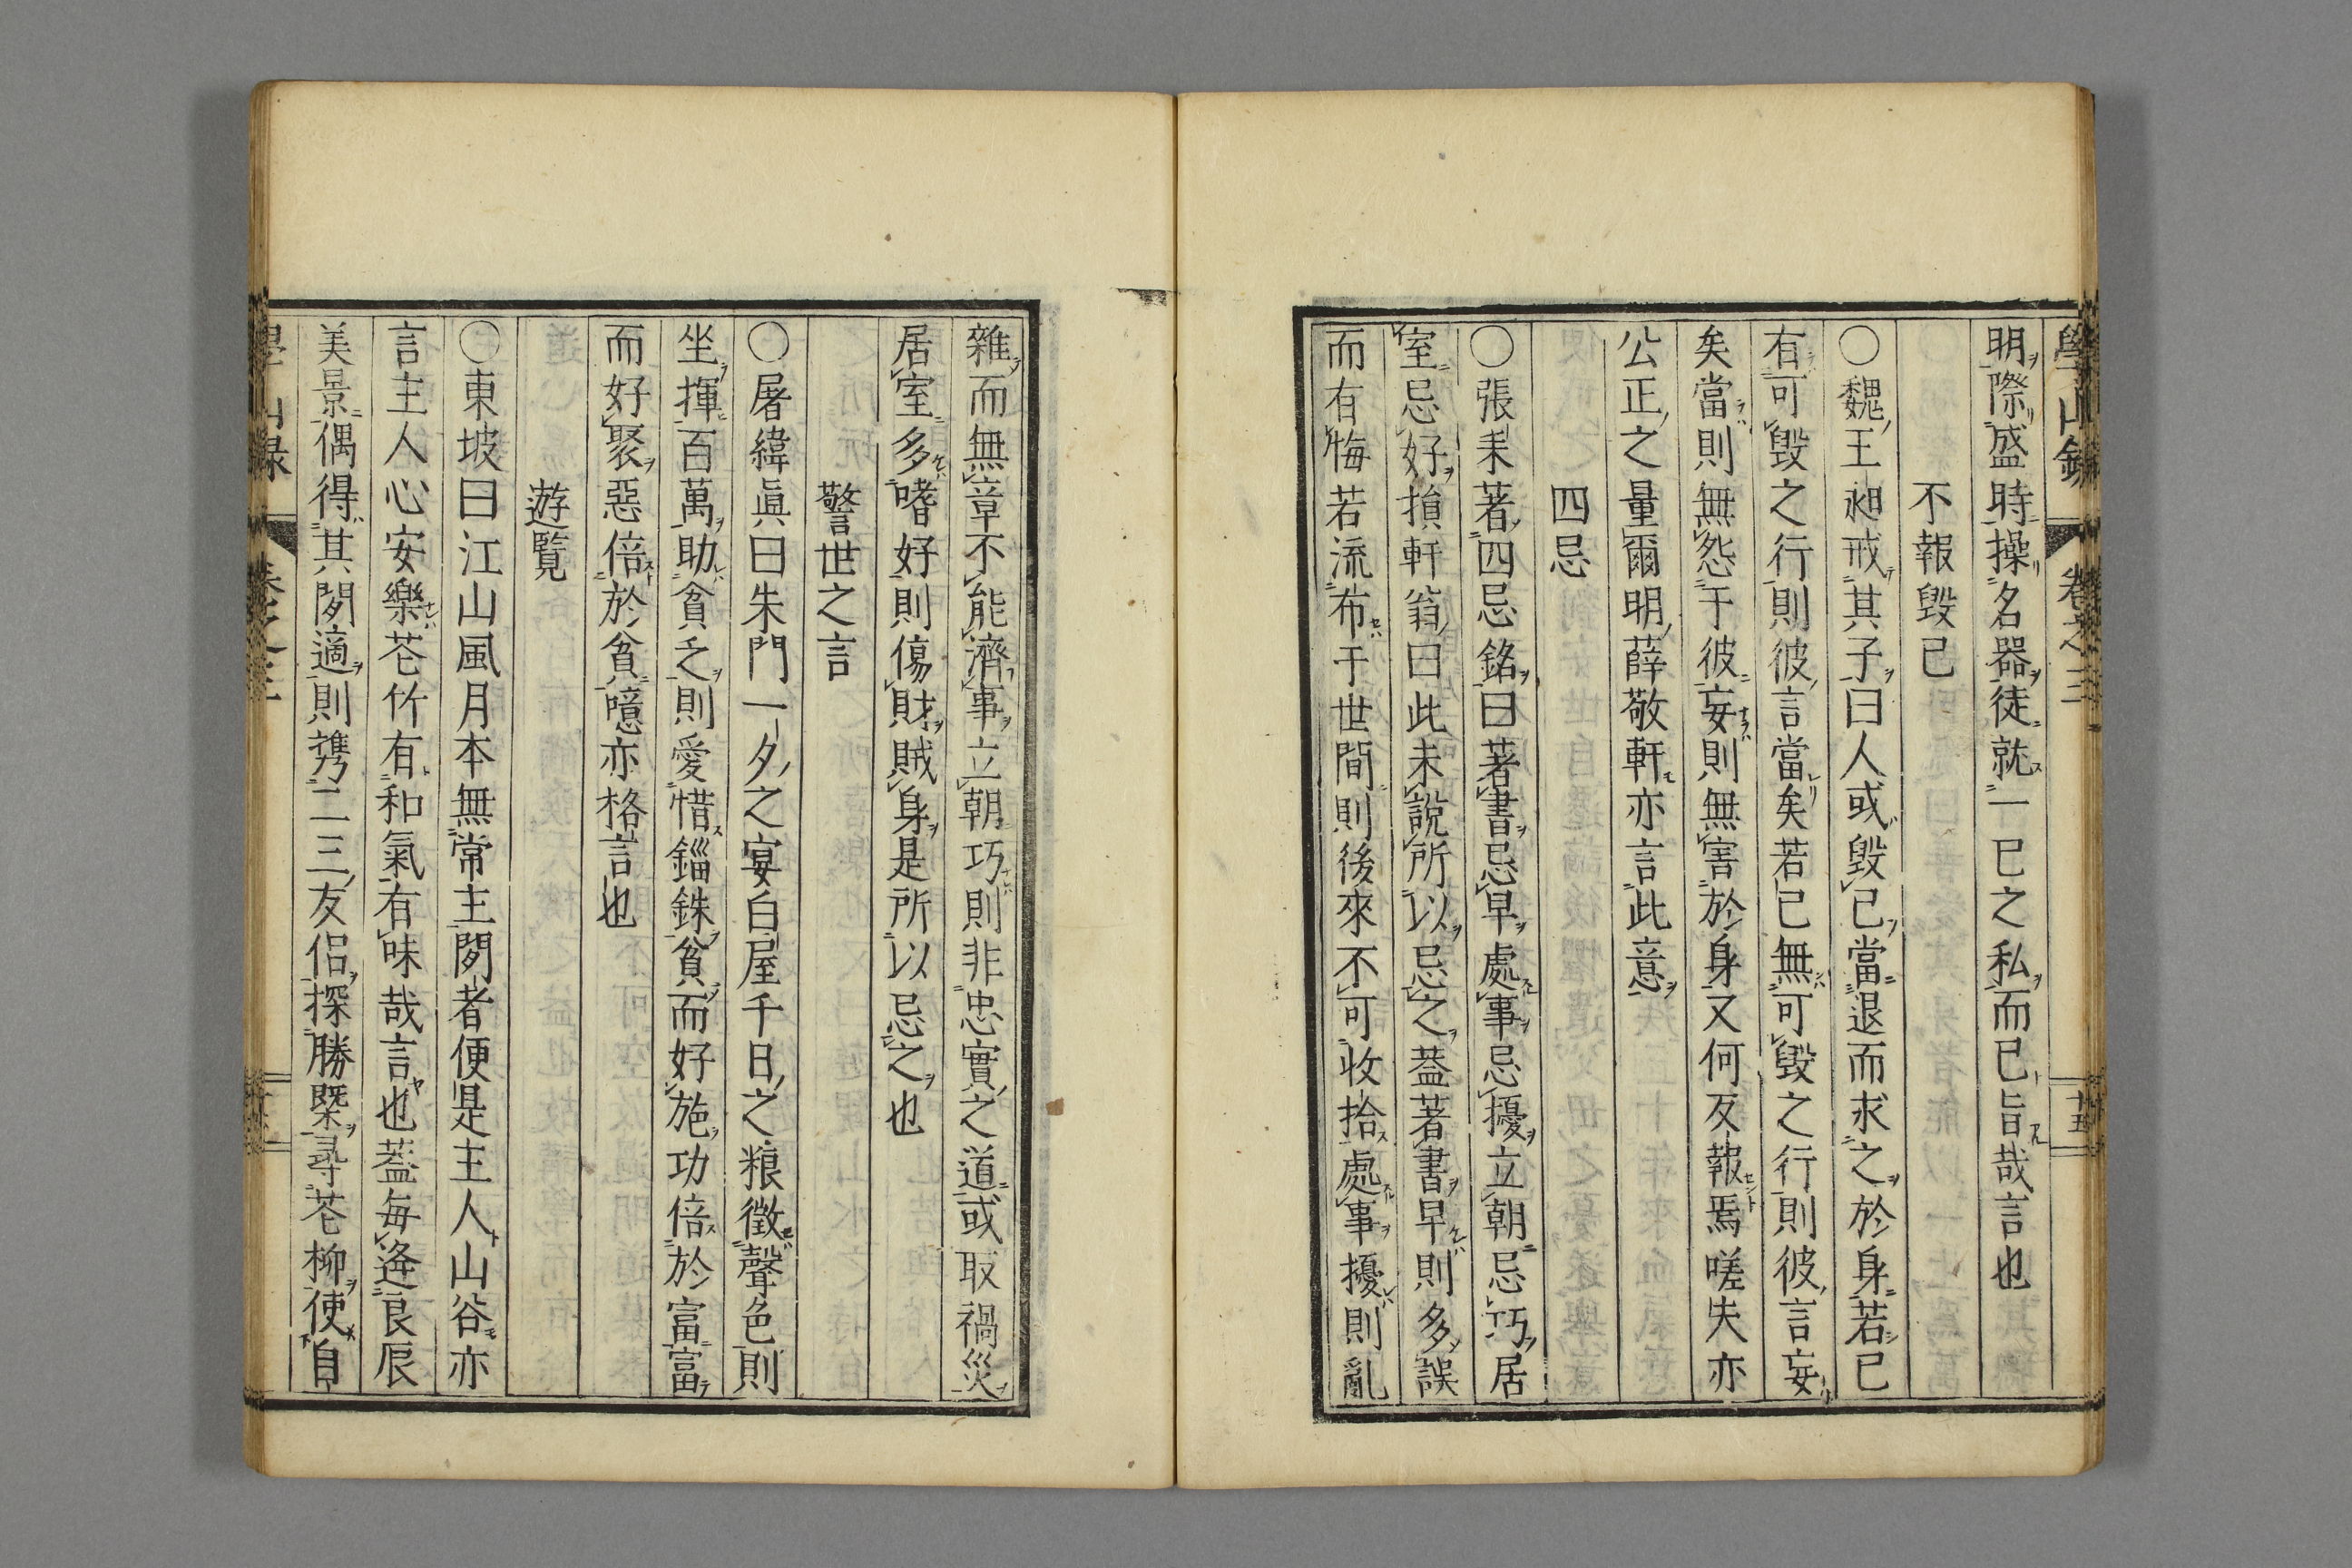 學山録 卷之三 十五
明際盛時操名器徒就一已之私而已旨哉言也
不報毀已
〇魏王昶戒其子曰人或毀已當退而求之於身若已
有可毀之行則彼言當矣若已無可毀之行則彼言妄
矣當則無怨于彼妄則無害於身又何反報焉嗟失亦
公正之量爾明薛敬軒亦言此意
四忌
〇張耒著四忌銘曰著書忌早處事忌擾立朝忌巧居
室忌好損軒翁曰此未說所以忌之葢著書早則多誤
而有悔若流布于世間則後來不可收拾處事擾則亂
雜而無章不能濟事立朝巧則非忠實之道或取禍災
居室多嗜好則傷財賊身是所以忌之也
警世之言
〇屠緯眞曰朱門一夕之宴白屋千日之粮徵聲色則
坐揮百萬助貧乏則愛惜錙銖貧而好施功倍於富富
而好聚惡倍於貧噫亦格言也
遊覧
〇東坡曰江山風月本無常主閑者便是主人山谷亦
言主人心安樂苍竹有和氣有味哉言也葢每逢良辰
美景偶得其閑適則携二三友侶探勝槩尋苍柳使自